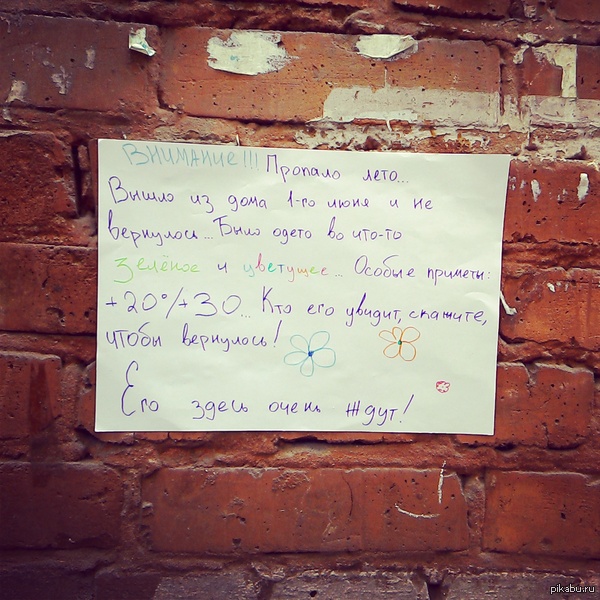 ВНИМАНИЕ!!! Пропало лето...
Вышло из дома 1-го июня и не
вернулось... Было одето во что-то
зелёное и цветущее... Особые приметы:
+20°/+30... Кто его увидит, скажите,
чтобы вернулось!
Его здесь очень ждут!
pikabu.ru